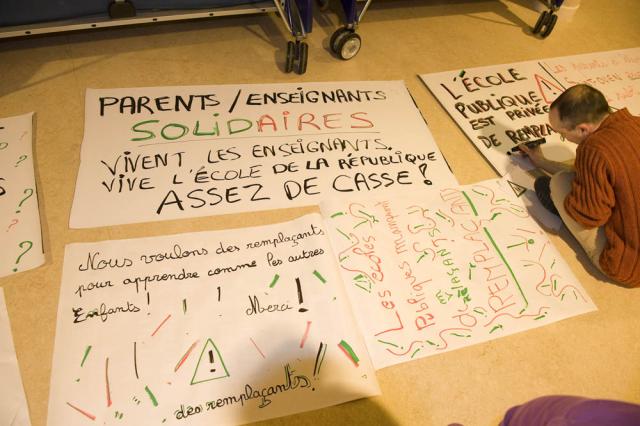 PARENTS / ENSEIGNANTS
SOLIDAIRES
VIVENT LES ENSEIGNANTS.
VIVE L'ÉCOLE DE LA RÉPUBLIQUE
ASSEZ DE CASSE !
L'ÉCOLE
PUBLIQUE
EST PRIVÉE
DE REMPLA
Nous voulons des remplaçants
pour apprendre comme les autres
Enfants ! Merci !
!
des remplaçants !
Les écoles
Publiques manquent
REMPLAÇANT
? ? ?